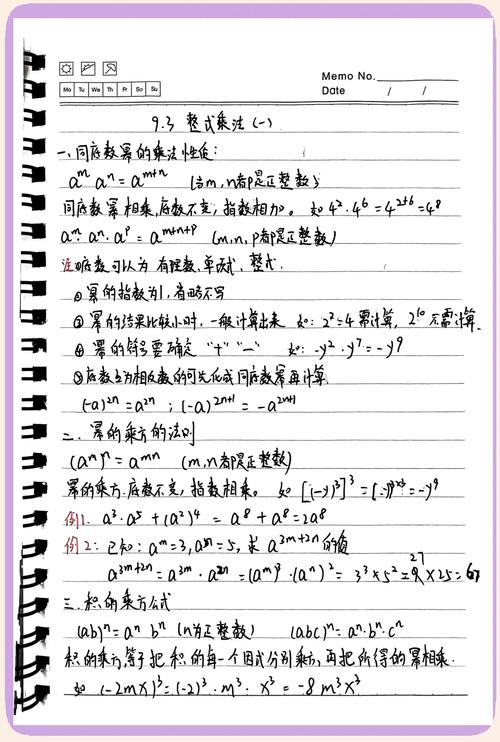 Memo No.
Mo Tu We Th Fr Sa Su
Date / /
9.3 整式乘法(一)
一、同底数幂的乘法性质:
aᵐ aⁿ = aᵐ⁺ⁿ (当m,n都是正整数)
同底数幂相乘,底数不变,指数相加。如 4²·4⁶=4²⁺⁶=4⁸
aᵐ·aⁿ·aᵖ = aᵐ⁺ⁿ⁺ᵖ (m,n,p都是正整数)
注①底数可以为 有理数、单项式、整式.
②幂的指数为1,省略不写
③幂的结果比较小时,一般计算出来 如:2²=4需计算,2¹⁰不需计算.
④幂的符号要确定 "+" "-" 如:-y²·y⁷=-y⁹
⑤底数互为相反数的可先化成同底数幂再计算.
(-a)²ⁿ=a²ⁿ ; (-a)²ⁿ⁺¹=-a²ⁿ⁺¹
二、幂的乘方的法则
(aᵐ)ⁿ=aᵐⁿ (m,n都是正整数)
幂的乘方.底数不变,指数相乘。如 [(-y)³]³=(-y)³ˣ³=-y⁹
例1. a³·a⁵+(a²)⁴ = a⁸+a⁸=2a⁸
例2:已知:aᵐ=3, aⁿ=5, 求 a³ᵐ⁺²ⁿ的值
a³ᵐ⁺²ⁿ=a³ᵐ·a²ⁿ=(aᵐ)³·(aⁿ)²= 3³×5²= 27×25=
三、积的乘方公式
(ab)ⁿ=aⁿ bⁿ (n为正整数) (abc)ⁿ=aⁿ·bⁿ·cⁿ
积的乘方,等于把积的每一个因式分别乘方,再把所得的幂相乘.
如 (-2mx)³=(-2)³·m³·x³=-8m³x³